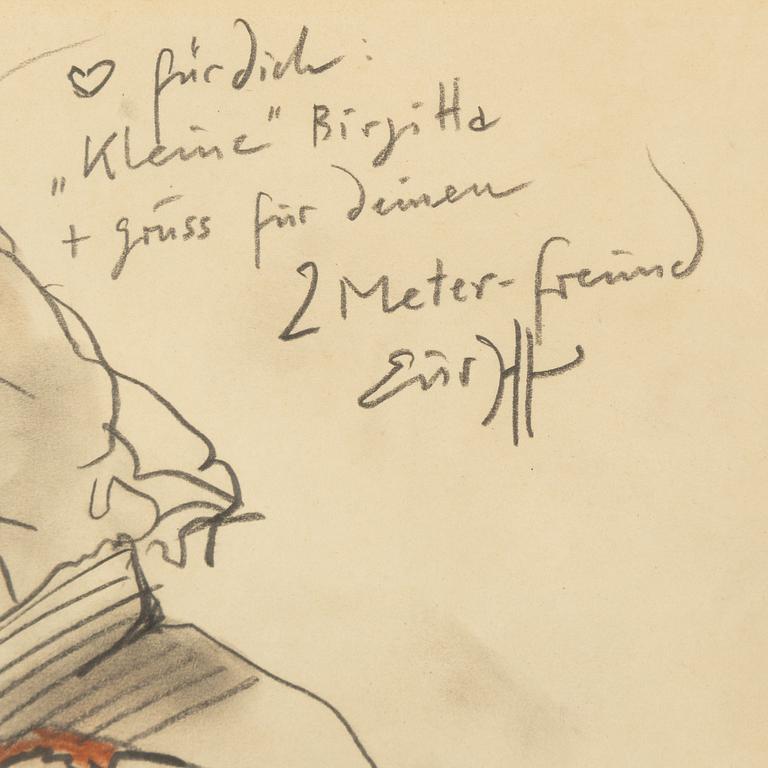 ♡ für dich:
„Kleine" Birgitta
+ grüss für deinen
2 Meter-freund
Eür